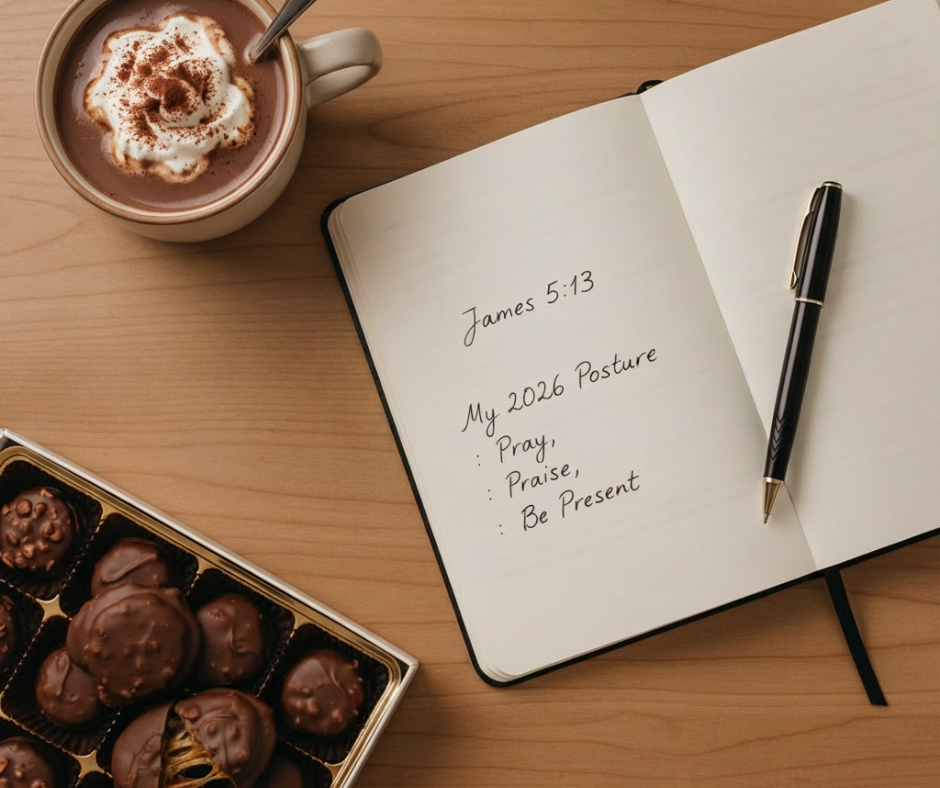 James 5:13
My 2026 Posture
: Pray,
: Praise,
: Be Present